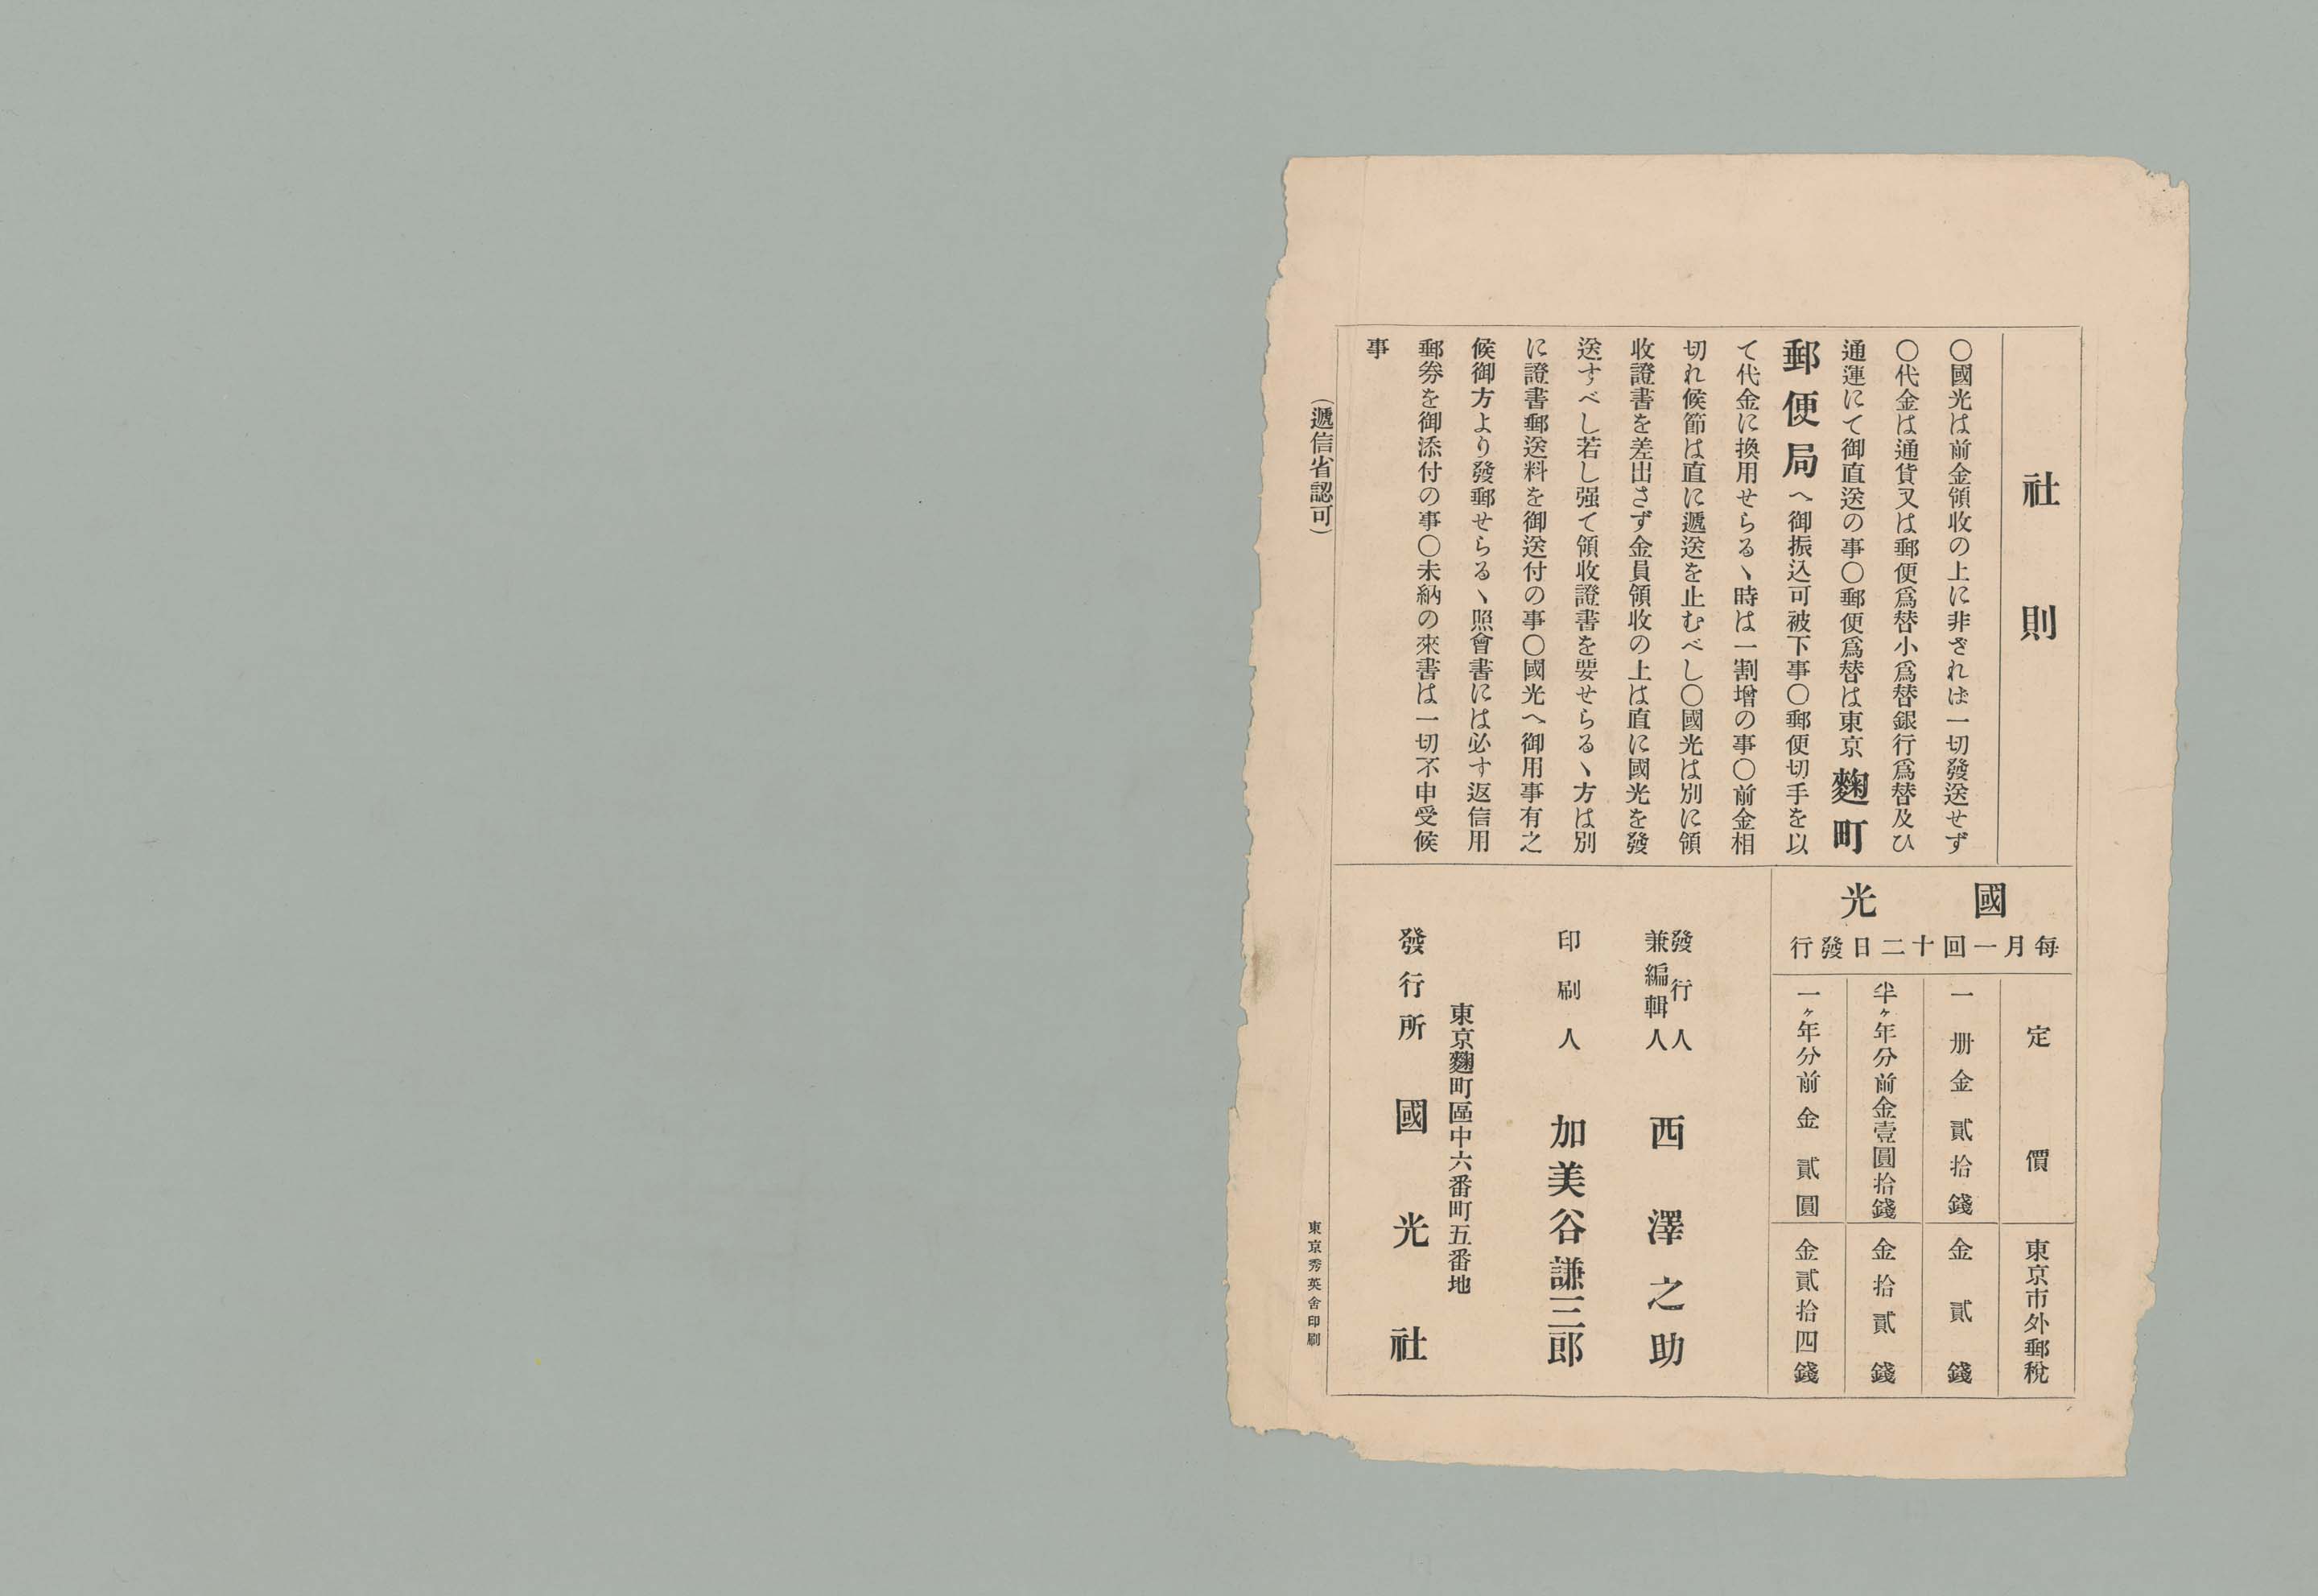 社則
〇國光は前金領收の上に非ざれは一切發送せず
〇代金は通貨又は郵便爲替小爲替銀行爲替及ひ
通運にて御直送の事〇郵便爲替は東京麴町
郵便局へ御振込可被下事〇郵便切手を以
て代金に換用せらるヽ時は一割增の事〇前金相
切れ候節は直に遞送を止むべし〇國光は別に領
收證書を差出さず金員領收の上は直に國光を發
送すべし若し强て領收證書を要せらるヽ方は別
に證書郵送料を御送付の事〇國光へ御用事有之
候御方より發郵せらるヽ照會書には必す返信用
郵券を御添付の事〇未納の來書は一切不申受候
事
國光
每月一回十二日發行
定價
東京市外郵稅
一册金貳拾錢
金貳錢
半ヶ年分前金壹圓拾錢
金拾貳錢
一ヶ年分前金貳圓
金貳拾四錢
發行人
兼編輯人
西澤之助
印刷人 加美谷謙三郎
東京麴町區中六番町五番地
發行所 國光社
(遞信省認可)
東京秀英舍印刷